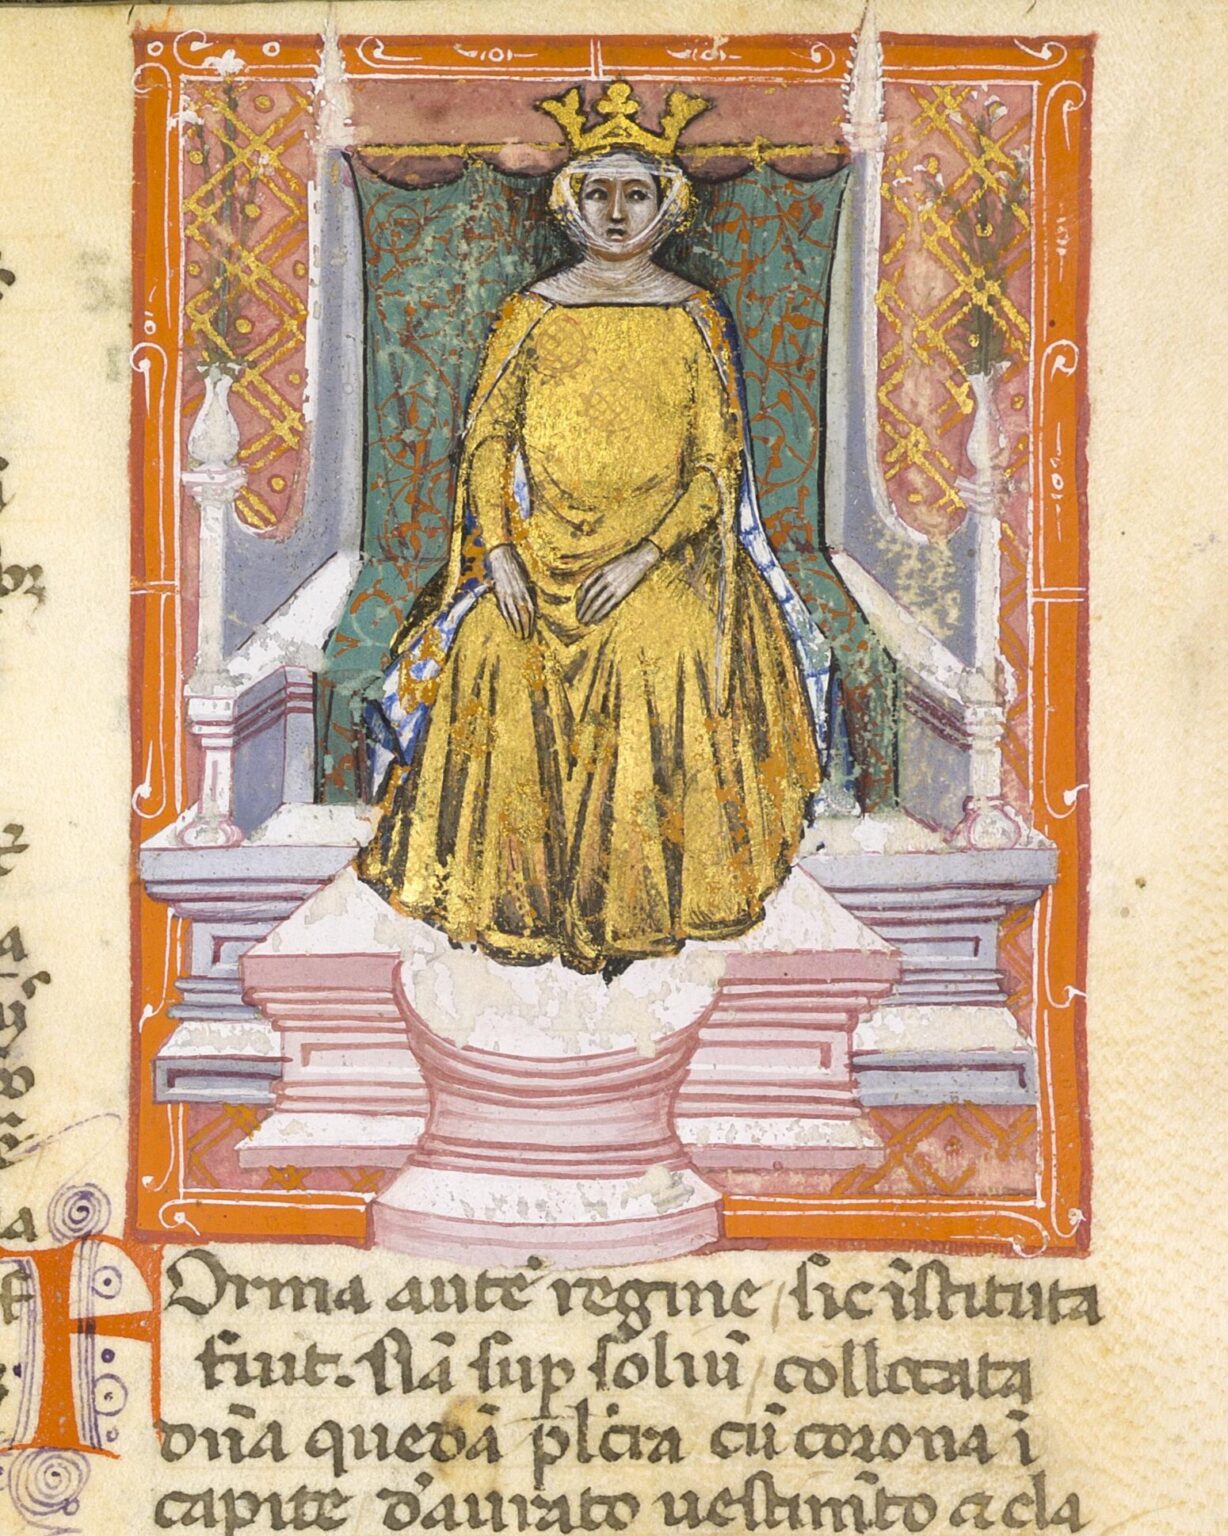 Forma autē regine sic īstituta
fuit. Nā sup soliū collocata
dn̄a quedā plcra cū corona ī
capite d'aurato uestimēto & cla